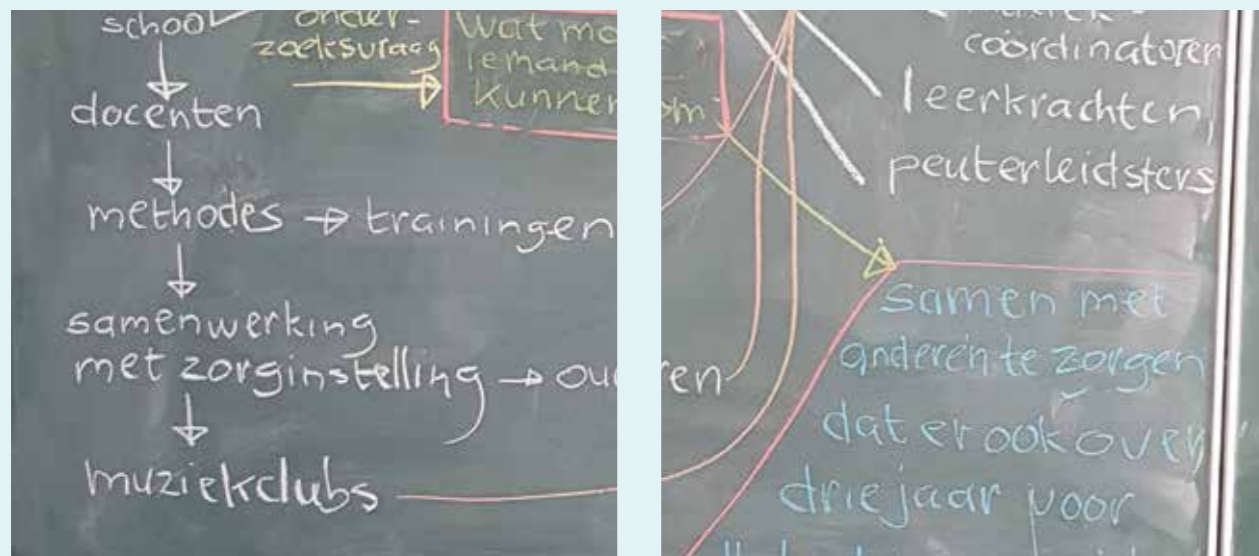 school
onder-
zoeksvraag
Wat mo
iemand
kunnen
docenten
methodes → trainingen
samenwerking
met zorginstelling → ou
muziekclubs
om
ren
coördinatoren
leerkrachten,
peuterleidsters
samen met
anderen te zorgen
dat er ook over
drie jaar voor